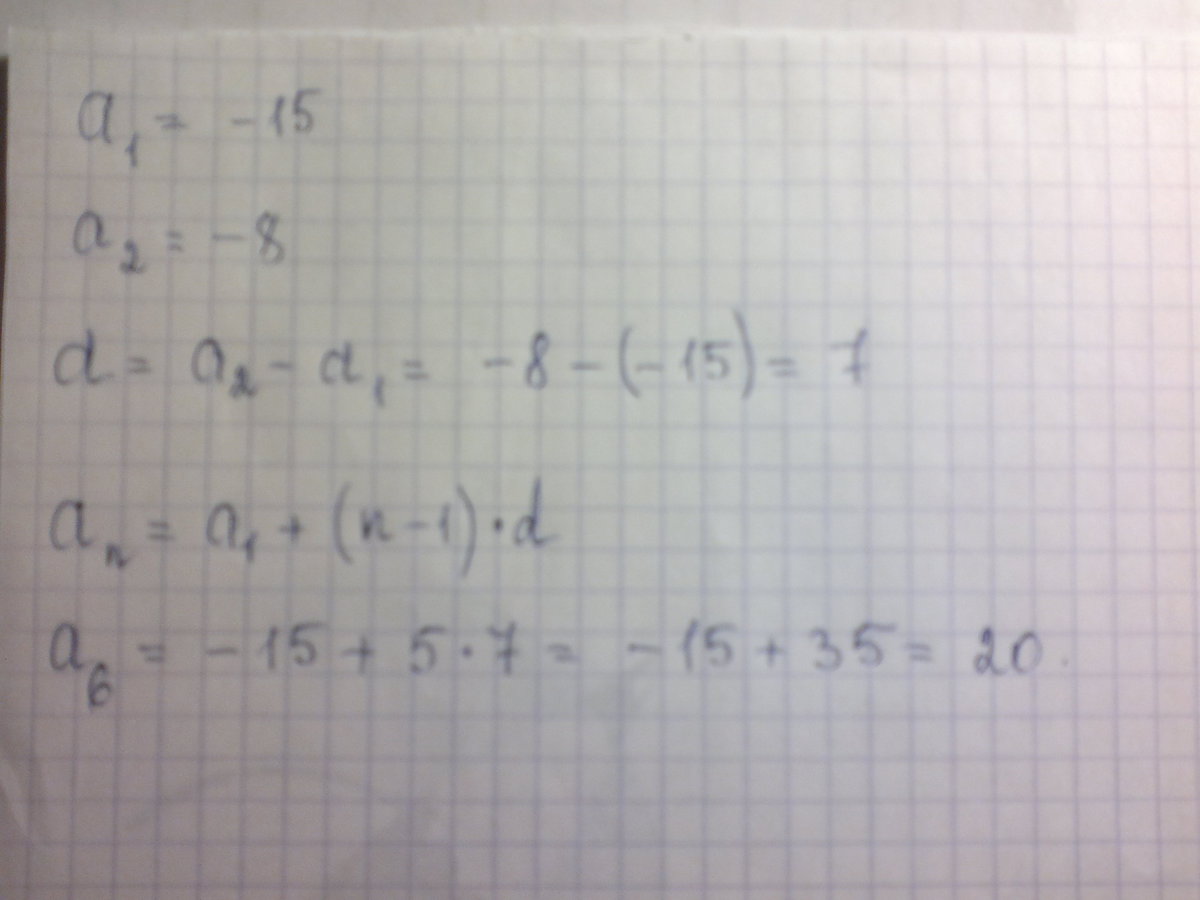 a₁ = -15
a₂ = -8
d = a₂ - a₁ = -8 - (-15) = 7
aₙ = a₁ + (n-1)·d
a₆ = -15 + 5·7 = -15 + 35 = 20.